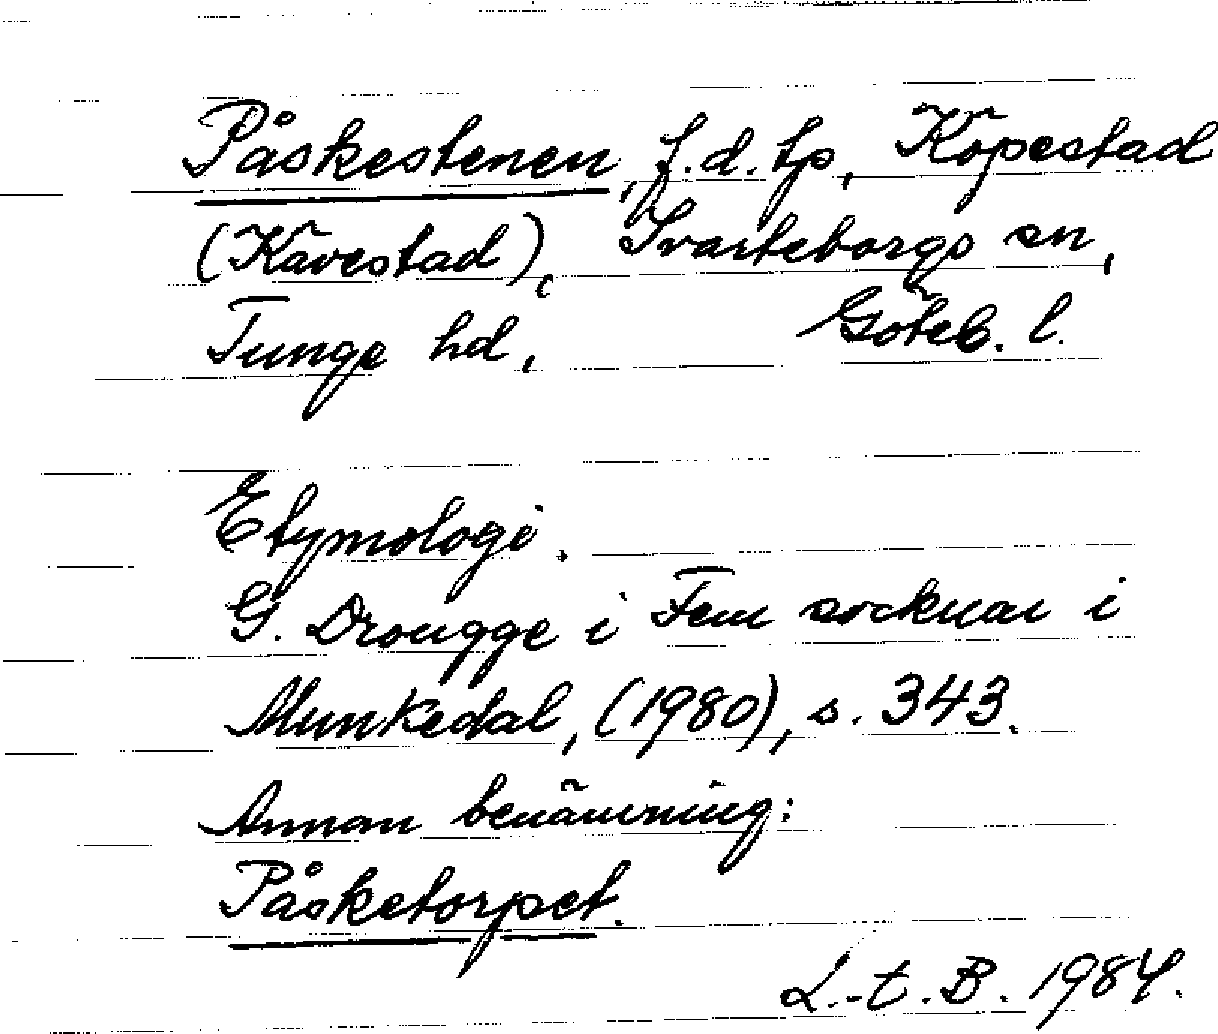 Påskestenen, f.d. tp, Köpestad
(Kävestad), Svarteborgs sn,
Tunge hd, Göteb. l.
Etymologi.
G. Drougge i Fem socknar i
Munkedal, (1980), s. 343.
Annan benämning:
Påsketorpet.
L.-t. B. 1984.